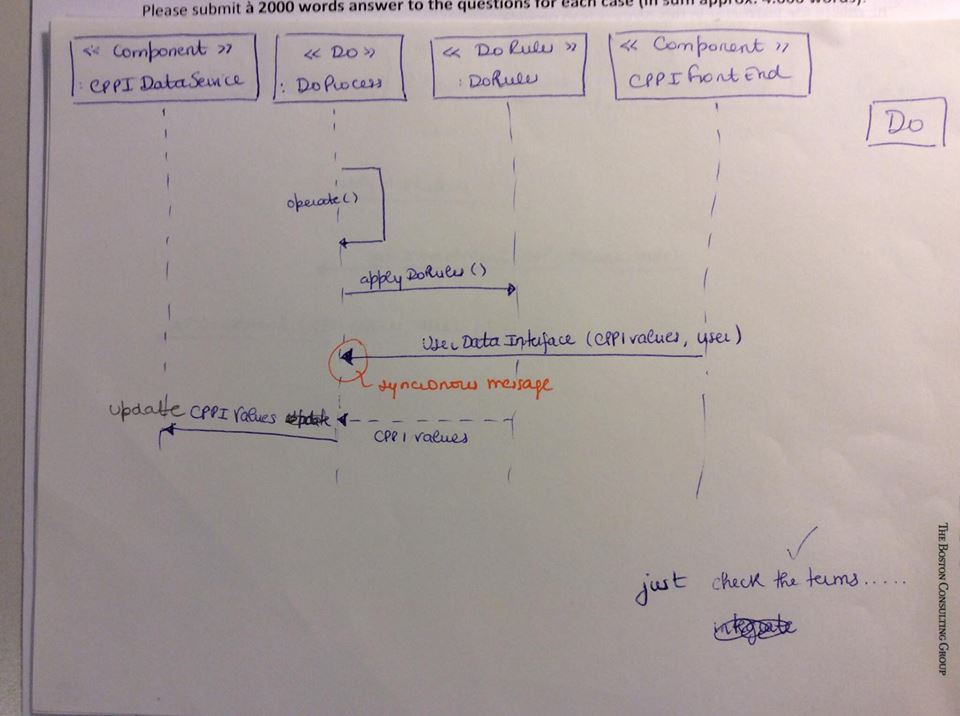 Please submit à 2000 words answer to the questions for each case (in sum approx. 4.000 words).
<< Component >>
: CPPI DataService
<< Do >>
: DoProcess
<< DoRule >>
: DoRule
<< Component >>
CPPI FrontEnd
Do
operate()
applyDoRules ()
User Data Interface (CPPIvalues, user)
syncronous message
update CPPI values update
CPPI values
just check the terms.....
integrate
THE BOSTON CONSULTING GROUP